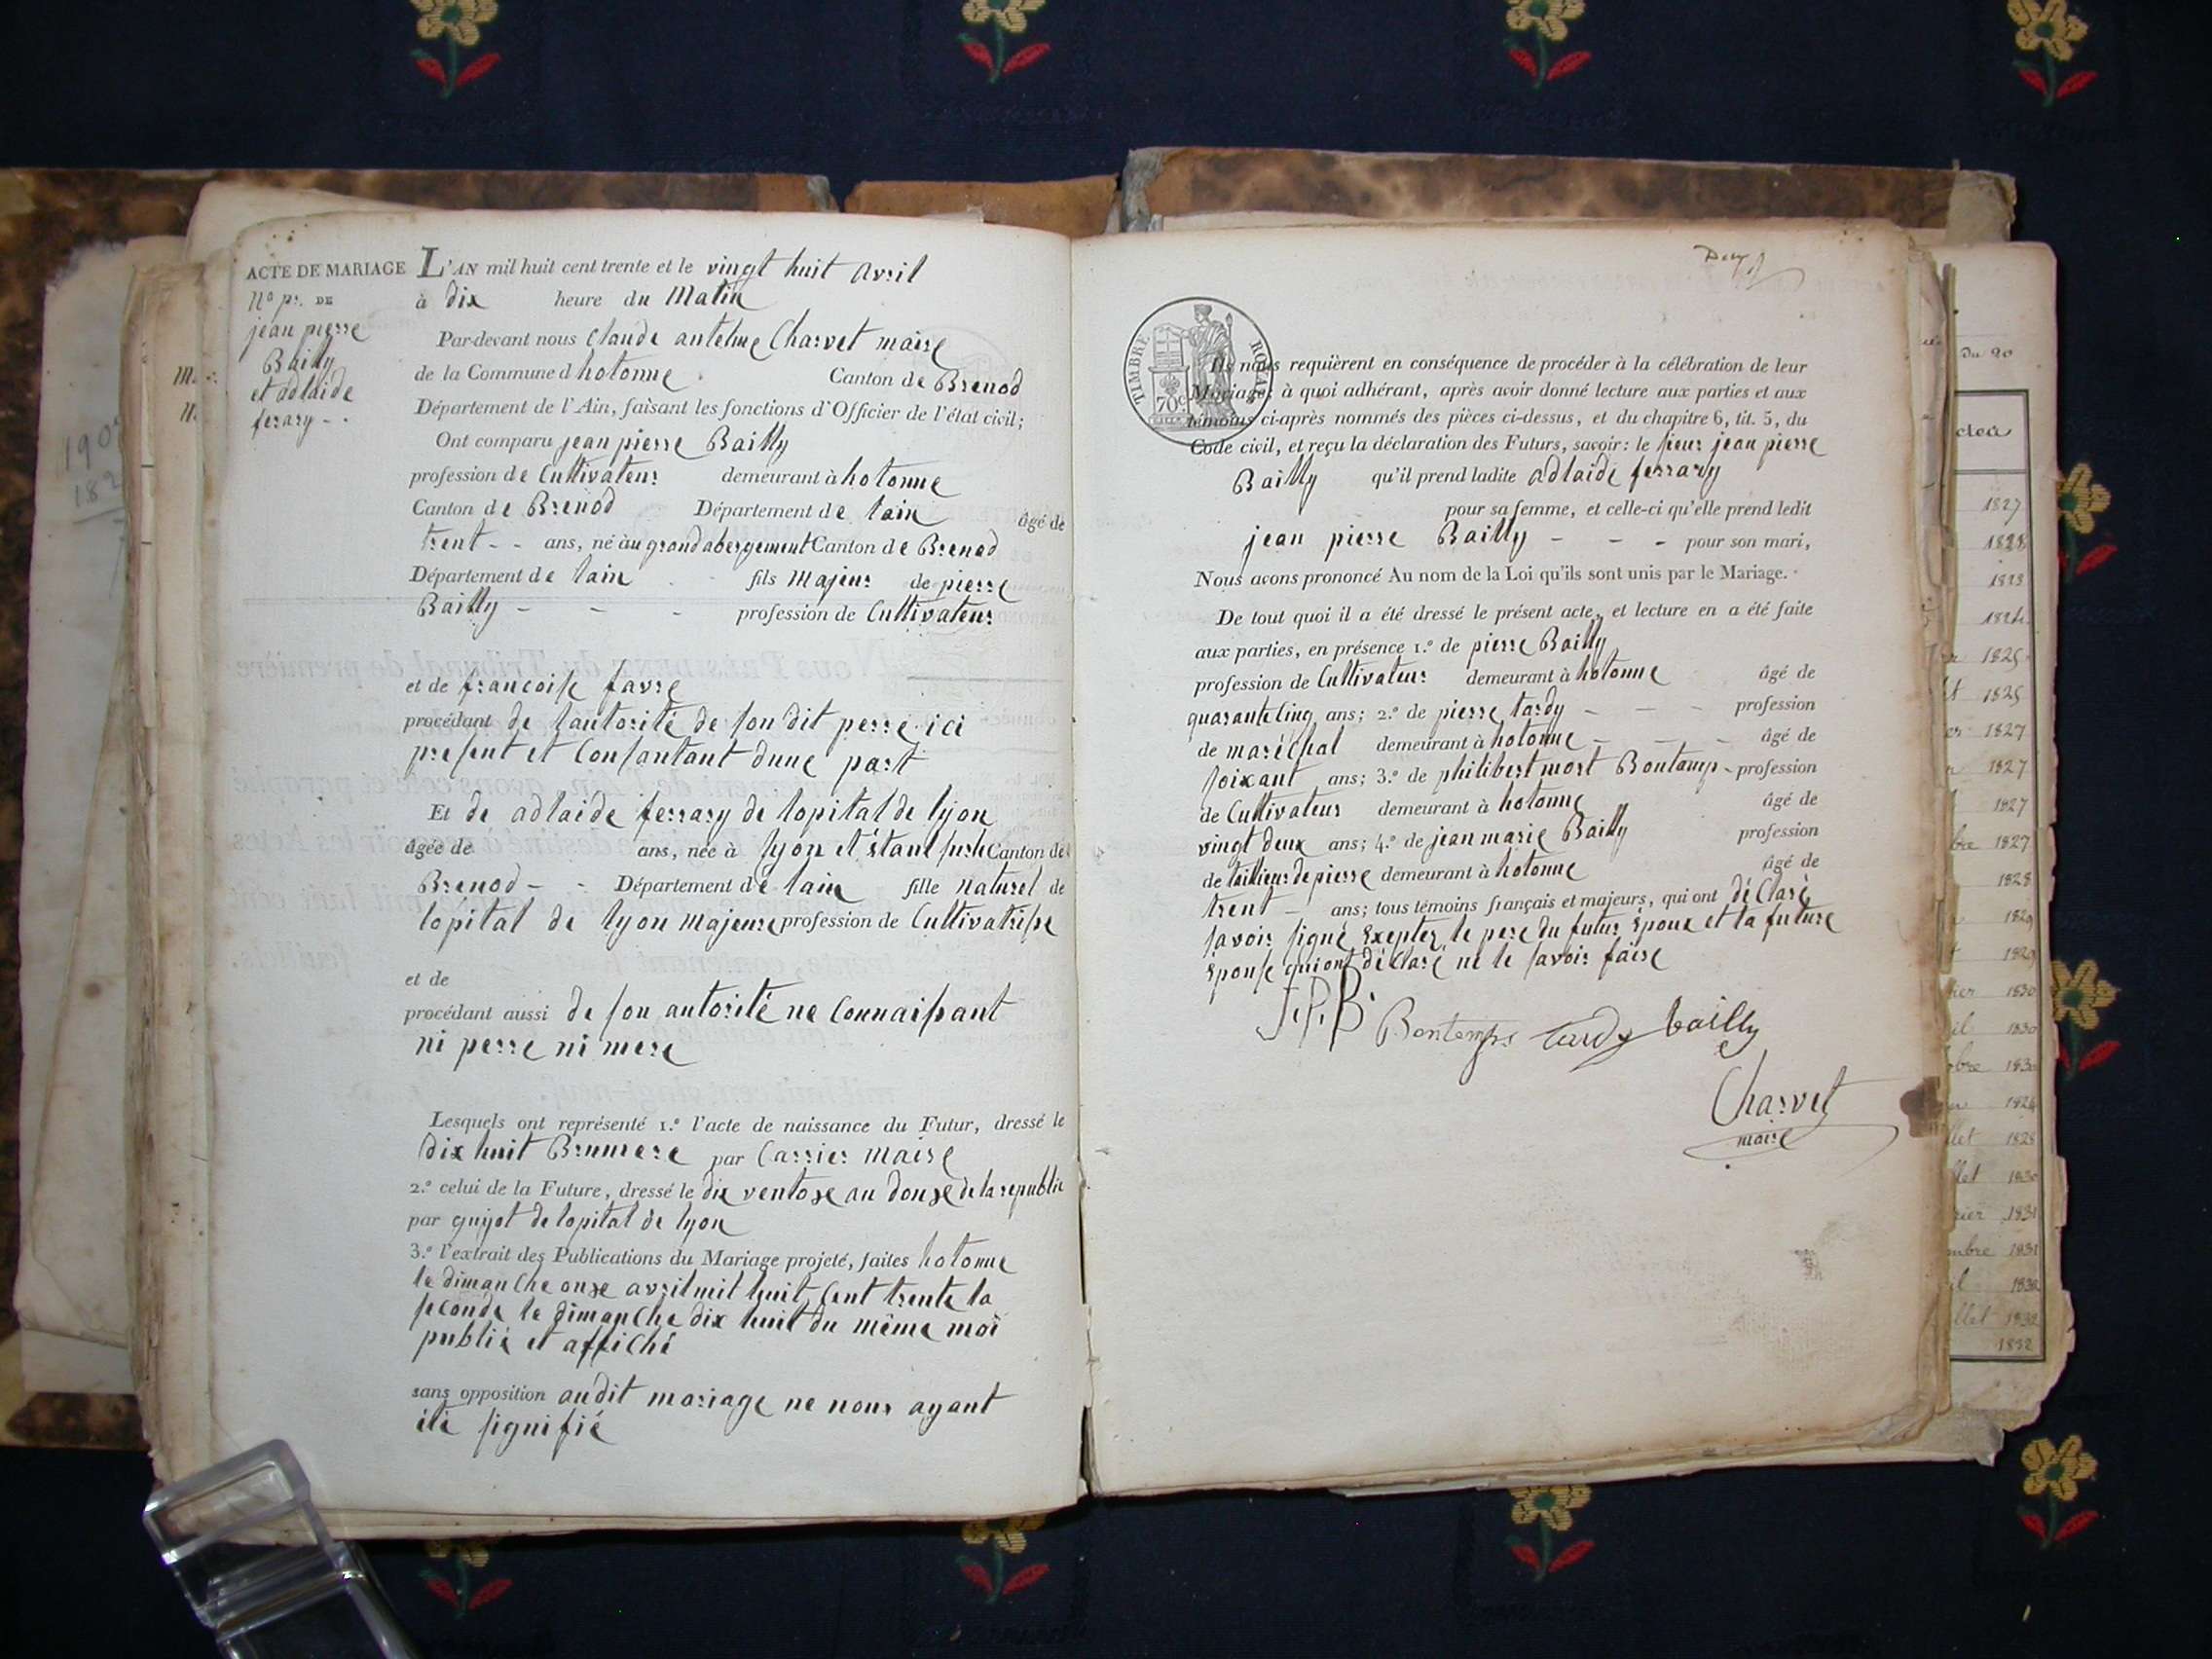 ACTE DE MARIAGE
No pr. DE
jean pierre
Bailly
et adlaide
ferary - -
L'AN mil huit cent trente et le vingt huit avril
à dix heure du Matin
Par-devant nous Claude antelme Charvet maire
de la Commune d hotonne Canton de Brenod
Département de l'Ain, faisant les fonctions d'Officier de l'état civil;
Ont comparu jean pierre Bailly
profession de Cultivateur demeurant à hotonne
Canton de Brenod Département de lain âgé de
trent - - ans, né àu grand abergement Canton de Brenod
Département de lain fils Majeur de pierre
Bailly - - - profession de Cultivateur
et de francoise favre
procédant de lautorité de son dit perre ici
present et Consantant dune part
Et de adlaide ferrary de lopital de lyon
âgée de ans, née à lyon et étant Canton de
Brenod - - Département de lain fille naturel de
lopital de lyon majeure profession de Cultivatrisse
et de
procédant aussi de son autorité ne Connaissant
ni perre ni mere
Lesquels ont représenté 1.º l'acte de naissance du Futur, dressé le
dix huit Brumere par Carrier maire
2.º celui de la Future, dressé le dix ventose an douse de la republic
par guyot de lopital de lyon
3.º l'extrait des Publications du Mariage projeté, faites hotonne
le dimanche onse avril mil huit Cent trente la
seconde le dimanche dix huit du même moi
publié et affiché
sans opposition audit mariage ne nous ayant
été signifié
TIMBRE ROYAL
70c
Ils nous requièrent en conséquence de procéder à la célébration de leur
Mariage; à quoi adhérant, après avoir donné lecture aux parties et aux
témoins ci-après nommés des pièces ci-dessus, et du chapitre 6, tit. 5, du
Code civil, et reçu la déclaration des Futurs, savoir: le sieur jean pierre
Bailly qu'il prend ladite adlaide ferrary
pour sa femme, et celle-ci qu'elle prend ledit
jean pierre Bailly - - - pour son mari,
Nous avons prononcé Au nom de la Loi qu'ils sont unis par le Mariage.
De tout quoi il a été dressé le présent acte, et lecture en a été faite
aux parties, en présence 1.º de pierre Bailly
profession de Cultivateur demeurant à hotonne âgé de
quarante cinq ans; 2.º de pierre tardy - - - profession
de maréchal demeurant à hotonne - - - âgé de
soixant ans; 3.º de philibert mort Bontamp - profession
de Cultivateur demeurant à hotonne âgé de
vingt deux ans; 4.º de jean marie Bailly profession
de tailleur de pierre demeurant à hotonne âgé de
trent - ans; tous témoins français et majeurs, qui ont déClaré
savoir signé exepter le pere du futur époux et la future
épouse qui ont déClaré ne le savoir faire
J.P.B. Bontemps tardy bailly
Charvet
maire
du 20
1827
1828
1823
1824
1825
1825
1827
1827
1827
bre 1827
1828
1829
1829
1830
il 1830
bre 1830
1824
llet 1828
llet 1830
1831
mbre 1831
1832
illet 1832
1832